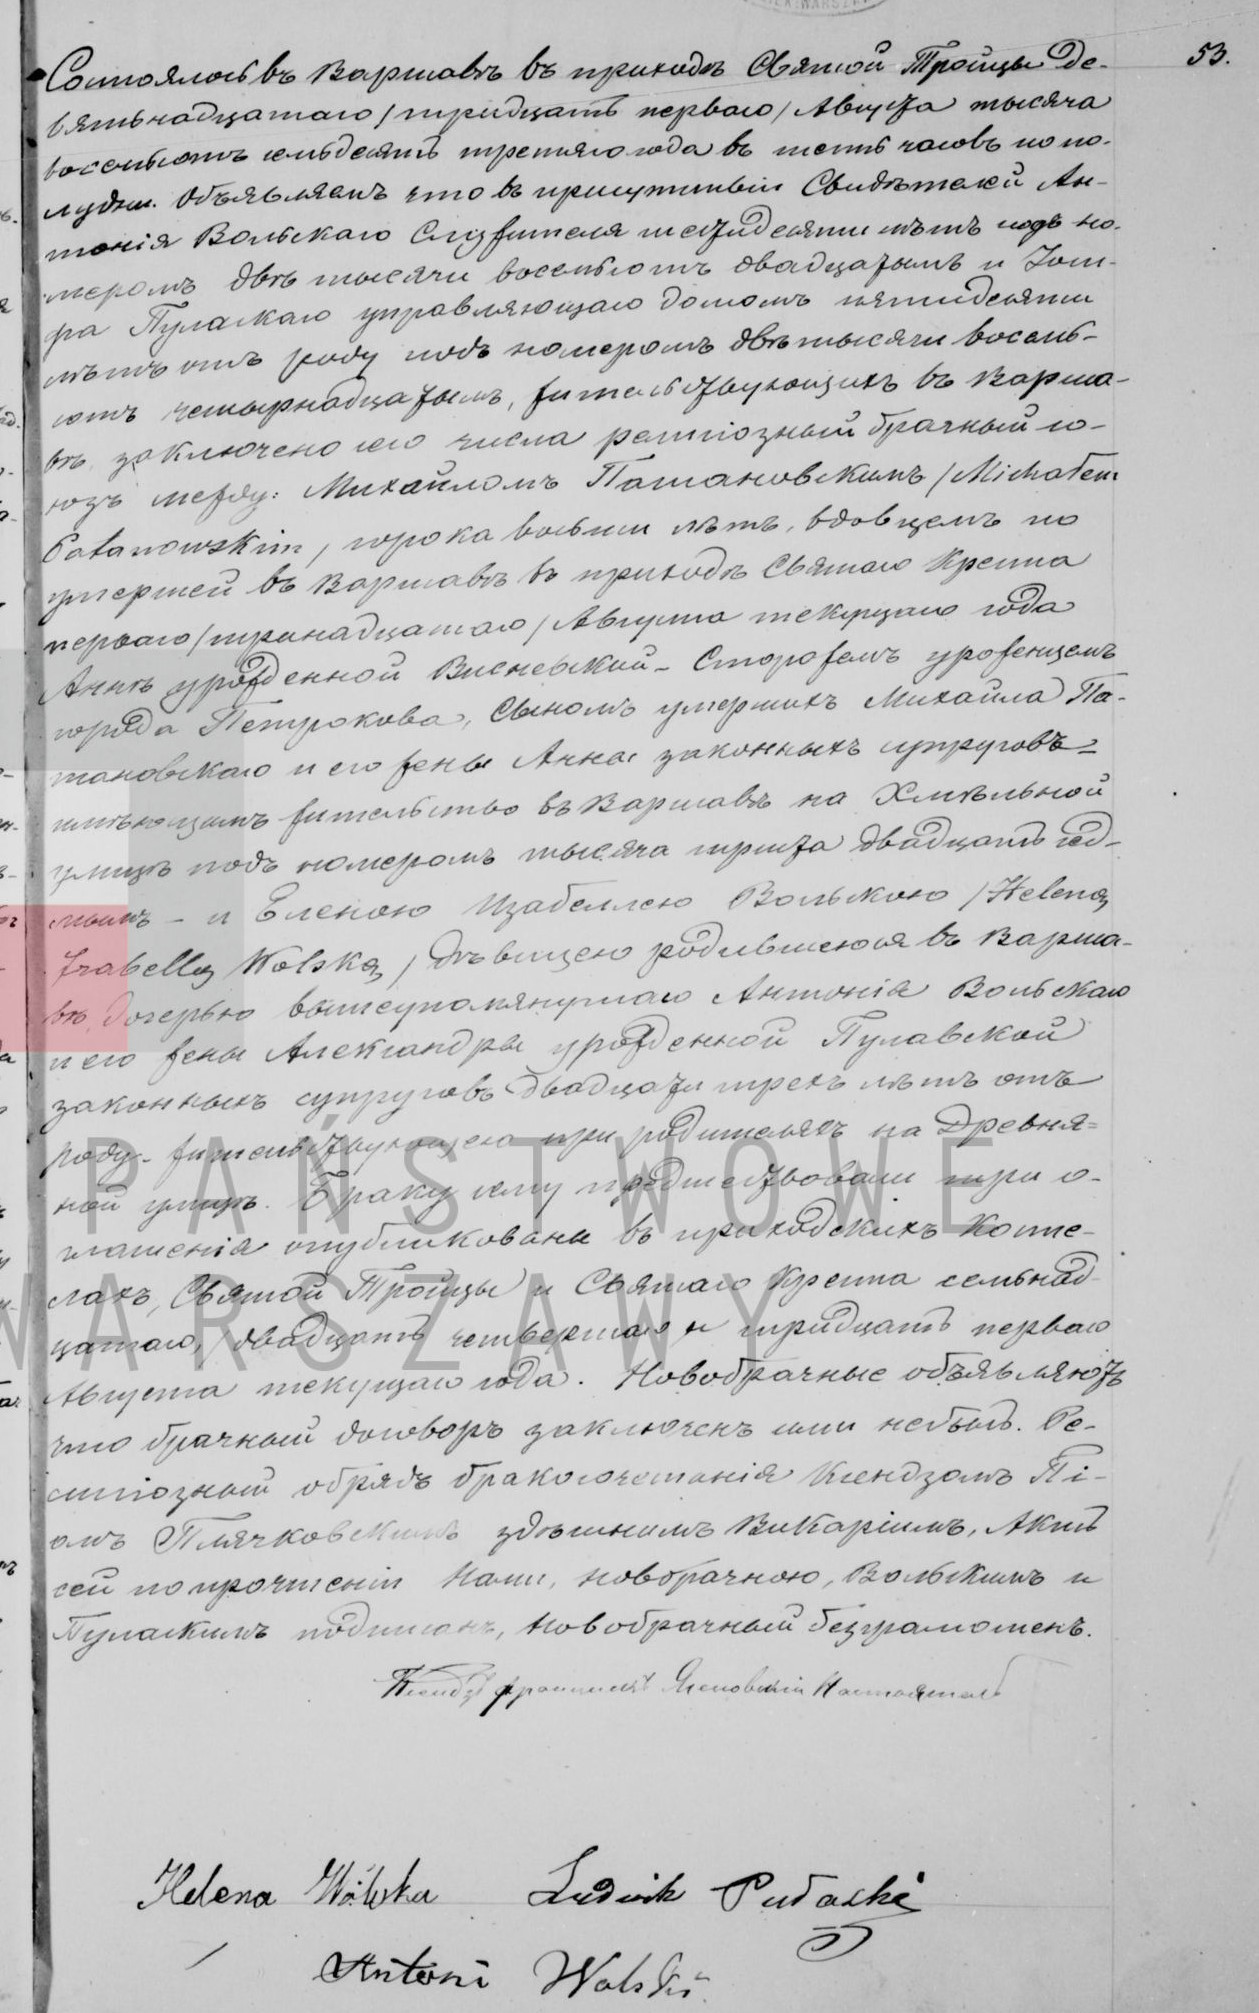 53.
Состоялось въ Варшавѣ въ приходѣ Святой Троицы де-
вятьнадцатаго /тридцать перваго/ Августа тысяча
восемьсотъ семьдесятъ третьяго года въ шесть часовъ по по-
лудни. Объявляемъ что въ присутствіи Свидѣтелей Ан-
тонія Вольскаго Служителя шестидесяти лѣтъ подъ но-
меромъ двѣ тысячи восемьсотъ двадцатымъ и
Пуласкаго управляющаго домомъ пятидесяти
лѣтъ отъ роду подъ номеромъ двѣ тысячи восемь-
сотъ четырнадцатымъ, жительствующихъ въ Варша-
вѣ, заключено сего числа религіозный брачный со-
юзъ между: Михайломъ Патановскимъ /Michałem
Patanowskim/, сорока восьми лѣтъ, вдовцемъ по
умершей въ Варшавѣ въ приходѣ Святаго Креста
перваго /тринадцатаго/ Августа текущаго года
Аннѣ урожденной Висневской - Сторожемъ уроженцемъ
города Петрокова, сыномъ умершихъ Михаила Па-
тановскаго и его жены Анны законныхъ супруговъ -
имѣющимъ жительство въ Варшавѣ на Хмѣльной
улицѣ подъ номеромъ тысяча триста двадцать сед-
мымъ - и Еленою Изабеллею Вольскою /Heleną
Izabellą Wolską/ дѣвицею родившеюся въ Варша-
вѣ, дочерью вышеупомянутаго Антонія Вольскаго
и его жены Александры урожденной Пулавской
законныхъ супруговъ двадцати трехъ лѣтъ отъ
роду - жительствующею при родителяхъ на Древня-
ной улицѣ. Браку сему предшествовали три о-
глашенія опубликованы въ приходскихъ Косте-
лахъ, Святой Троицы и Святаго Креста семьнад-
цатаго, двадцать четвертаго и тридцать перваго
Августа текущаго года. Новобрачные объявляютъ
что брачный договоръ заключенъ ими небылъ. Ре-
лигіозный обрядъ бракосочетанія Ксендзомъ Пі-
омъ Плячковскимъ здѣшнимъ Викаріимъ, Актъ
сей по прочтеніи Нами, новобрачною, Вольскимъ и
Пуласкимъ подписанъ, Новобрачный безграмотенъ.
Ксендзъ Настоятель
Helena Wólska Ludwik Pułaski
Antoni Wolski
PAŃSTWOWE
WARSZAWY